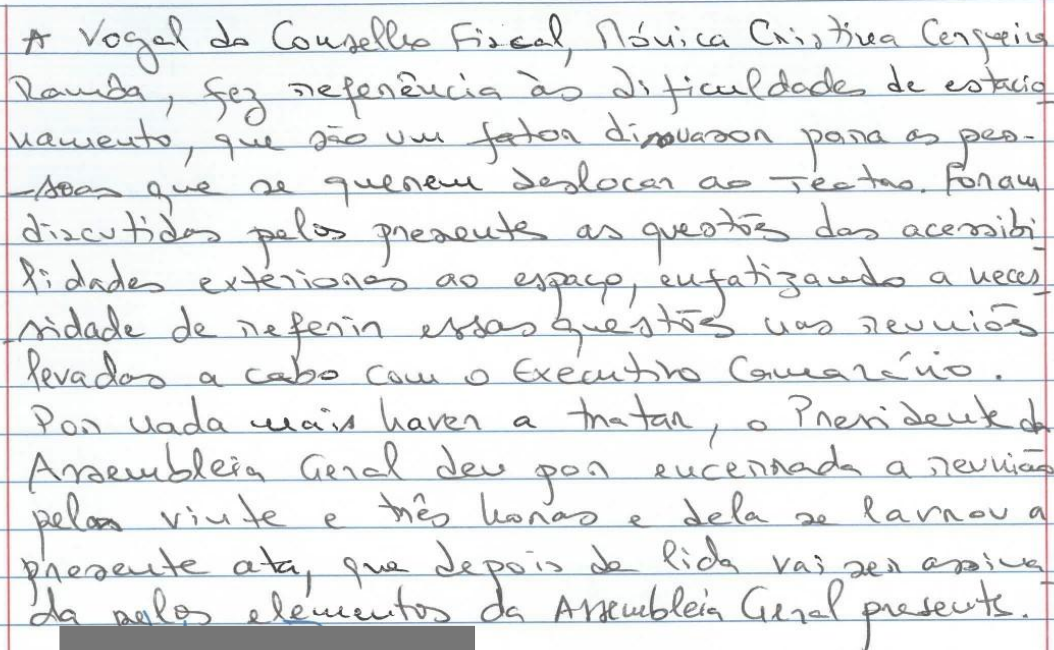 A Vogal do Conselho Fiscal, Mónica Cristina Cerqueira
Ramda, fez referência às dificuldades de estacio
namento, que são um fator dissuasor para as pes-
-soas que se querem deslocar ao Teatro. Foram
discutidas pelos presentes as questões das acessibi
lidades exteriores ao espaço, enfatizando a neces_
_sidade de referir essas questões nas reuniões
levadas a cabo com o Executivo Camarário.
Por nada mais haver a tratar, o Presidente da
Assembleia Geral deu por encerrada a reunião
pelas vinte e três horas e dela se lavrou a
presente ata, que depois de lida vai ser assina
da pelos elementos da Assembleia Geral presents.